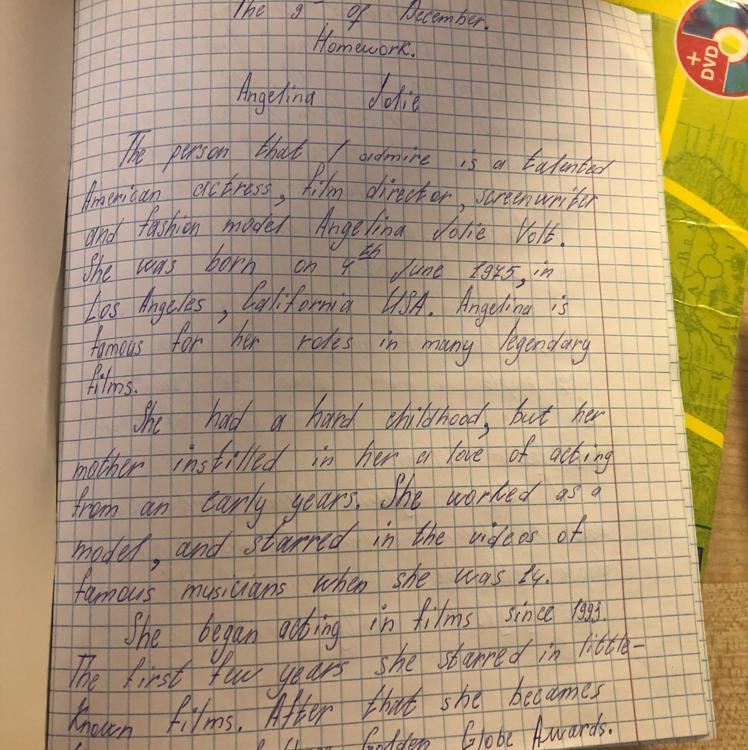 The 9 of December.
Homework.
Angelina Jolie
The person that I admire is a talented
American actress, film director, screenwriter
and fashion model Angelina Jolie Voit.
She was born on 4th June 1975, in
Los Angeles, California USA. Angelina is
famous for her roles in many legendary
films.
She had a hard childhood, but her
mother instilled in her a love of acting
from an early years. She worked as a
model, and starred in the videos of
famous musicians when she was 14.
She began acting in films since 1993.
The first few years she starred in little-
known films. After that she becames
Golden Globe Awards.
+
DVD